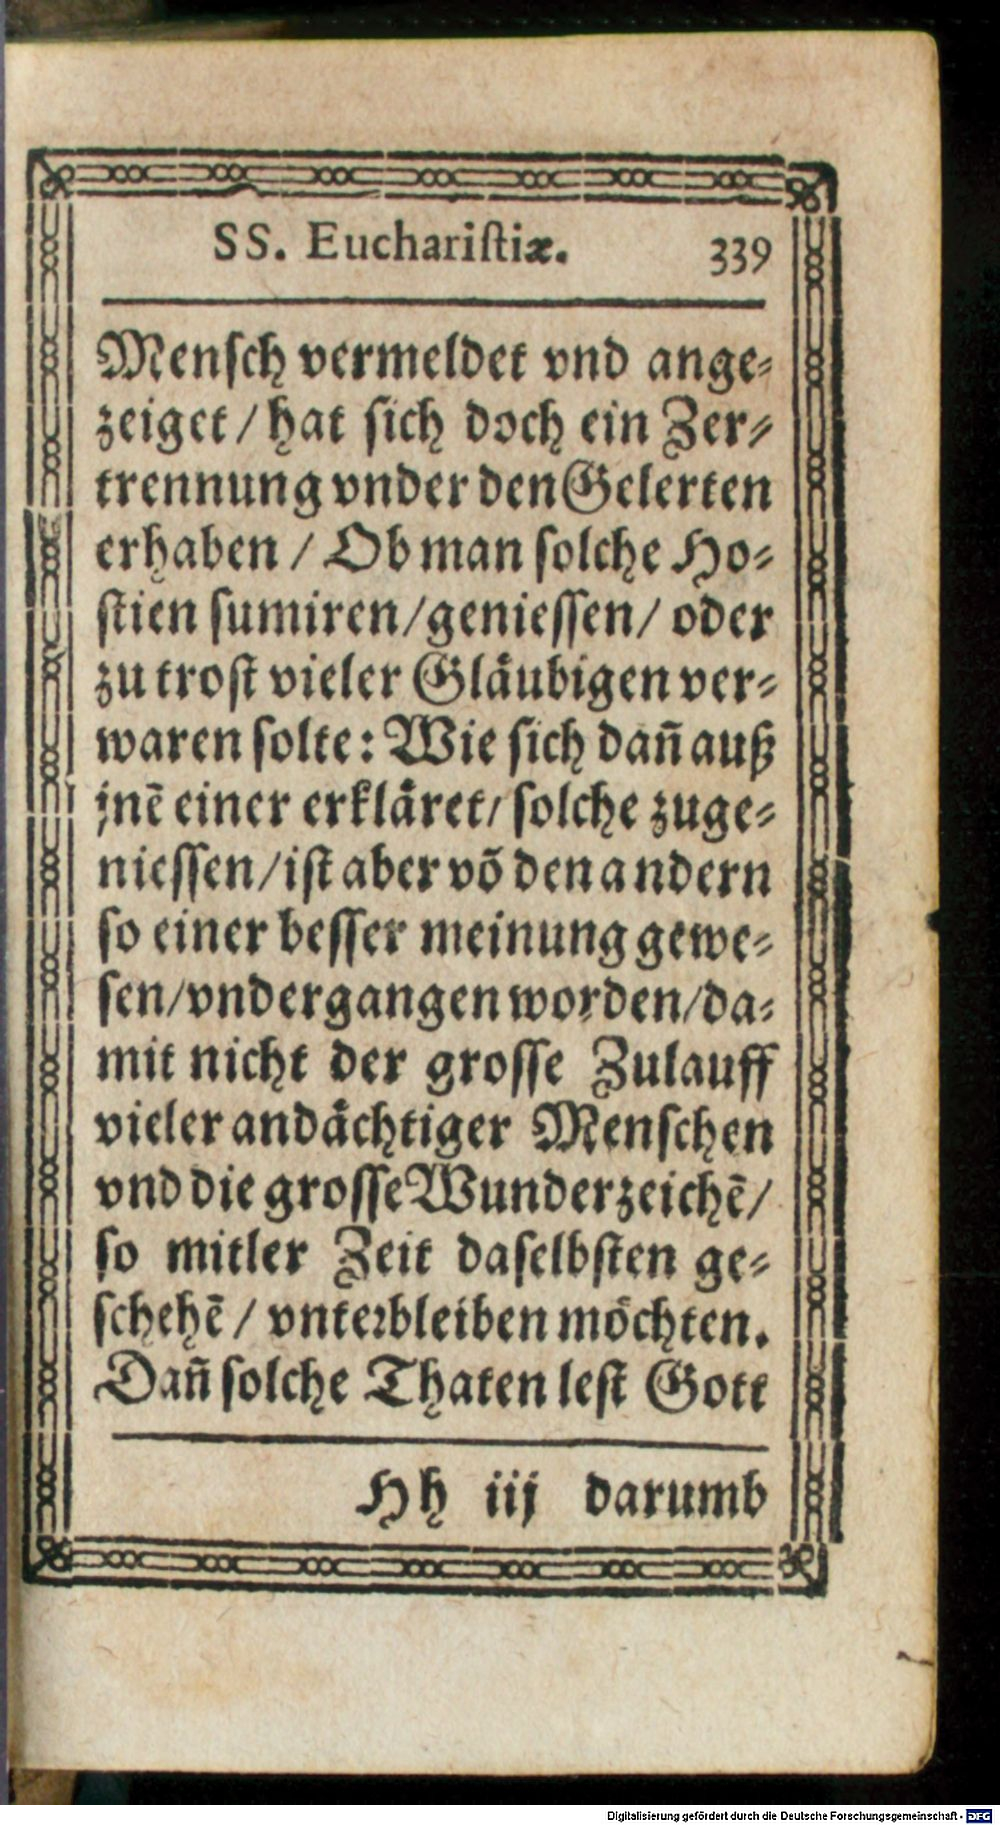 SS. Euchariſtiæ. 339
Menſch vermeldet vnd ange⸗
zeiget / hat ſich doch ein Zer⸗
trennung vnder den Gelerten
erhaben / Ob man ſolche Ho⸗
ſtien ſumiren/genieſſen/ oder
zu troſt vieler Glaͤubigen ver⸗
waren ſolte: Wie ſich dañ auß
jnē einer erklaͤret/ ſolche zuge⸗
nieſſen/iſt aber võ den andern
ſo einer beſſer meinung gewe⸗
ſen/vndergangen worden/da⸗
mit nicht der groſſe Zulauff
vieler andaͤchtiger Menſchen
vnd die groſſe Wunderzeichē/
ſo mitler Zeit daſelbſten ge⸗
ſchehē / vnteꝛbleiben moͤchten.
Dañ ſolche Thaten leſt Gott
Hh iij darumb
Digitalisierung gefördert durch die Deutsche Forschungsgemeinschaft - DFG